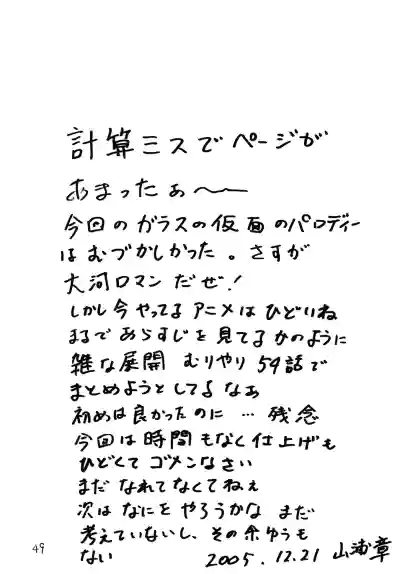 計算ミスでページが
あまったぁ〜
今回のガラスの仮面のパロディー
はむづかしかった。さすが
大河ロマンだぜ!
しかし今やってるアニメはひどいね
まるであらすじを見てるかのように
雑な展開 むりやり54話で
まとめようとしてるなぁ
初めは良かったのに…残念
今回は時間もなく仕上げも
ひどくてゴメンなさい
まだなれてなくてねぇ
次はなにをやろうかな まだ
考えていないし、その余ゆうも
ない 2005.12.21 山浦章
49